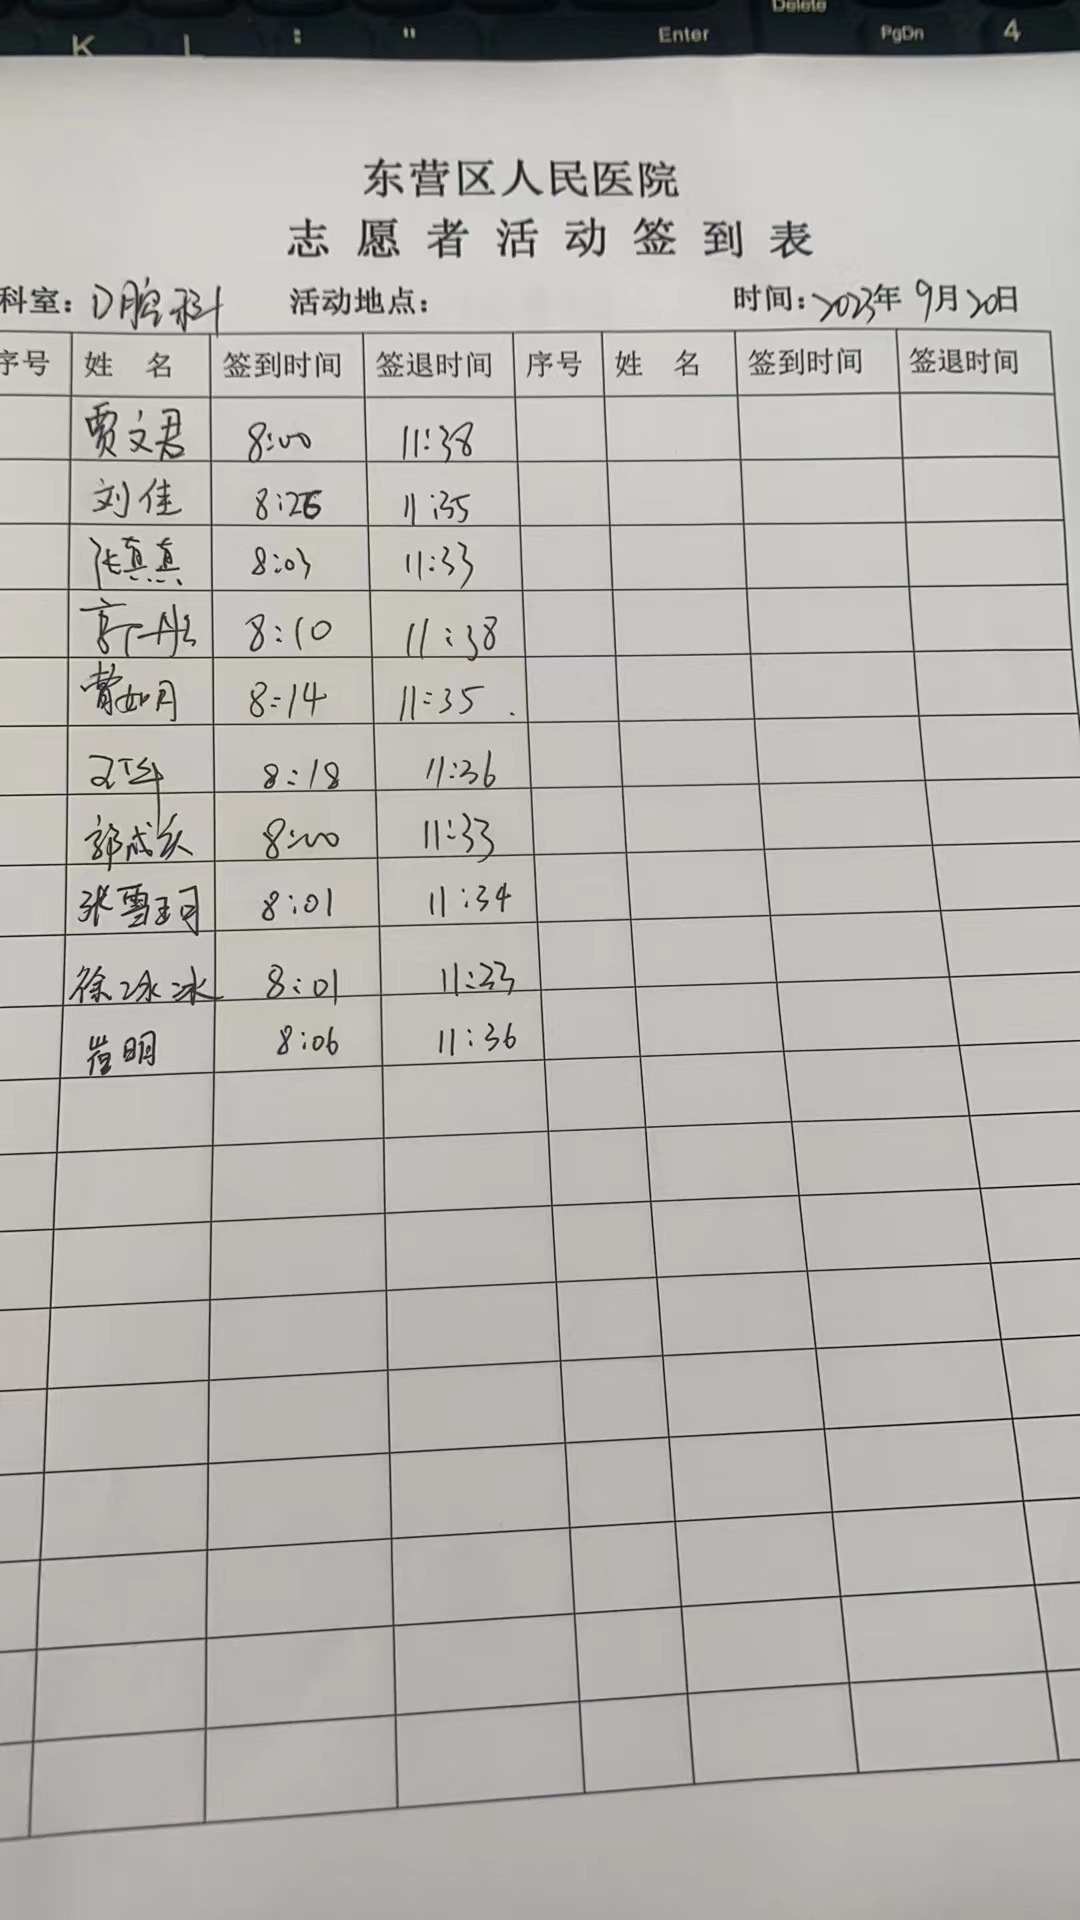 K L : " Enter Delete PgDn 4
东营区人民医院
志愿者活动签到表
科室: 口腔科 活动地点: 时间: 2023年 9月20日
序号 姓 名 签到时间 签退时间 序号 姓 名 签到时间 签退时间
贾文君 8:00 11:38
刘佳 8:26 11:35
张真真 8:03 11:33
8:10 11:38
曹如月 8:14 11:35
8:18 11:36
8:00 11:33
张雪珂 8:01 11:34
徐冰冰 8:01 11:33
崔明 8:06 11:36